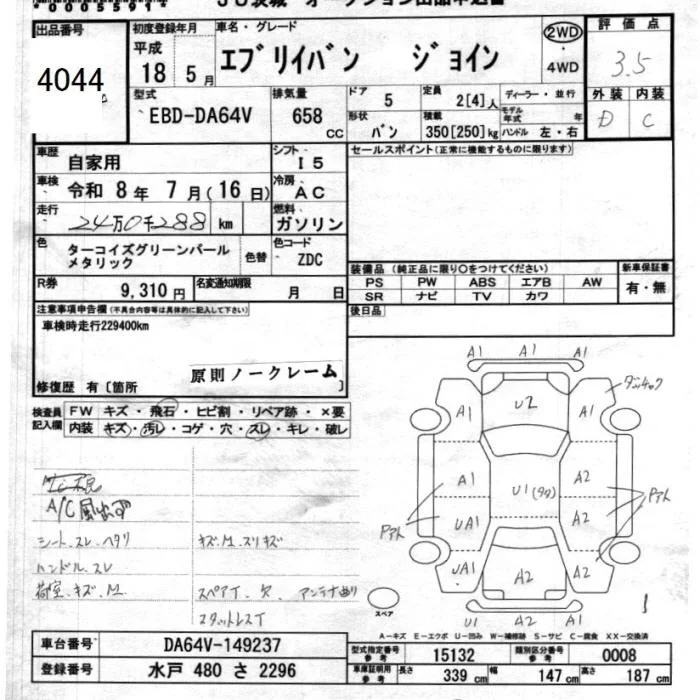 出品番号
4044
初度登録年月
平成
18 5月
車名・グレード
エブリイバン ジョイン
2WD
・
4WD
評価点
3.5
外装 内装
D C
型式
EBD-DA64V
排気量
658
CC
ドア
5
定員
2[4]人
ディーラー・並行
モデル年式 年
形状
バン
積載
350[250]kg
ハンドル 左・右
車歴
自家用
シフト
I5
セールスポイント(正常に機能するものに限ります)
車検
令和 8年 7月(16日)
冷房
AC
走行
24万0千288 km
燃料
ガソリン
色
ターコイズグリーンパール
メタリック
色替
色コード
ZDC
R券
9,310円
名変通知期限
月 日
装備品 (純正品に限り○をつけてください)
PS PW ABS エアB AW
SR ナビ TV カワ
新車保証書
有・無
後日品
注意事項申告欄(不具合内容等は具体的に記入して下さい)
車検時走行229400km
原則ノークレーム
修復歴 有〔箇所 〕
検査員
記入欄
FW キズ・飛石・ヒビ割・リペア跡・×要
内装 キズ・汚レ・コゲ・穴・スレ・キレ・破レ
A/C
シート.スレ.ヘタリ
キズ.M.スリキズ
ハンドル.スレ
荷室.キズ.M
スペアT.欠.アンテナ曲り
スタットレスT
A1 A1 A1
A1 U2 A1
A1 U1(タタ) A2
UA1 A2
UA1 A2 A2
U1 A2 A1
スペア
A－キズ E－エクボ U－凹み W－補修跡 S－サビ C－腐食 XX－交換済
車台番号
DA64V-149237
登録番号
水戸 480 さ 2296
型式指定番号
参考
15132
類別区分番号
参考
0008
車庫証明用
参考
長さ
339 cm
幅
147 cm
高さ
187 cm